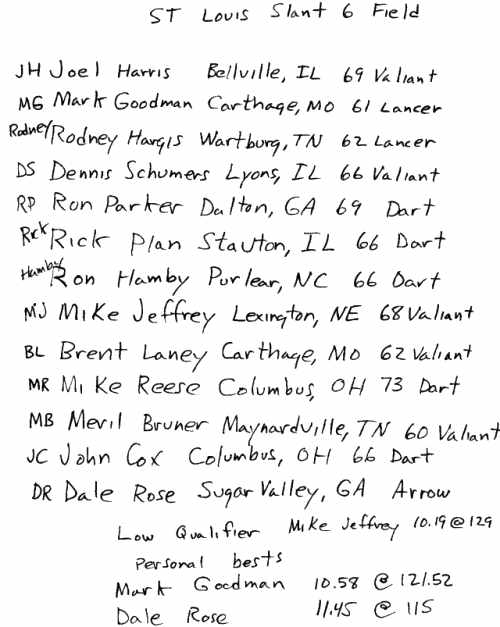 ST Louis Slant 6 Field
JH Joel Harris Bellville, IL 69 Valiant
MG Mark Goodman Carthage, MO 61 Lancer
Rodney/Rodney Hargis Wartburg, TN 62 Lancer
DS Dennis Schumers Lyons, IL 66 Valiant
RP Ron Parker Dalton, GA 69 Dart
Rick Rick Plan Stauton, IL 66 Dart
Hamby/Ron Hamby Purlear, NC 66 Dart
MJ Mike Jeffrey Lexington, NE 68 Valiant
BL Brent Laney Carthage, Mo 62 Valiant
MR Mike Reese Columbus, OH 73 Dart
MB Meril Bruner Maynardville, TN 60 Valiant
JC John Cox Columbus, OH 66 Dart
DR Dale Rose Sugar Valley, GA Arrow
Low Qualifier Mike Jeffrey 10.19 @ 129
Personal bests
Mark Goodman 10.58 @ 121.52
Dale Rose 11.45 @ 115